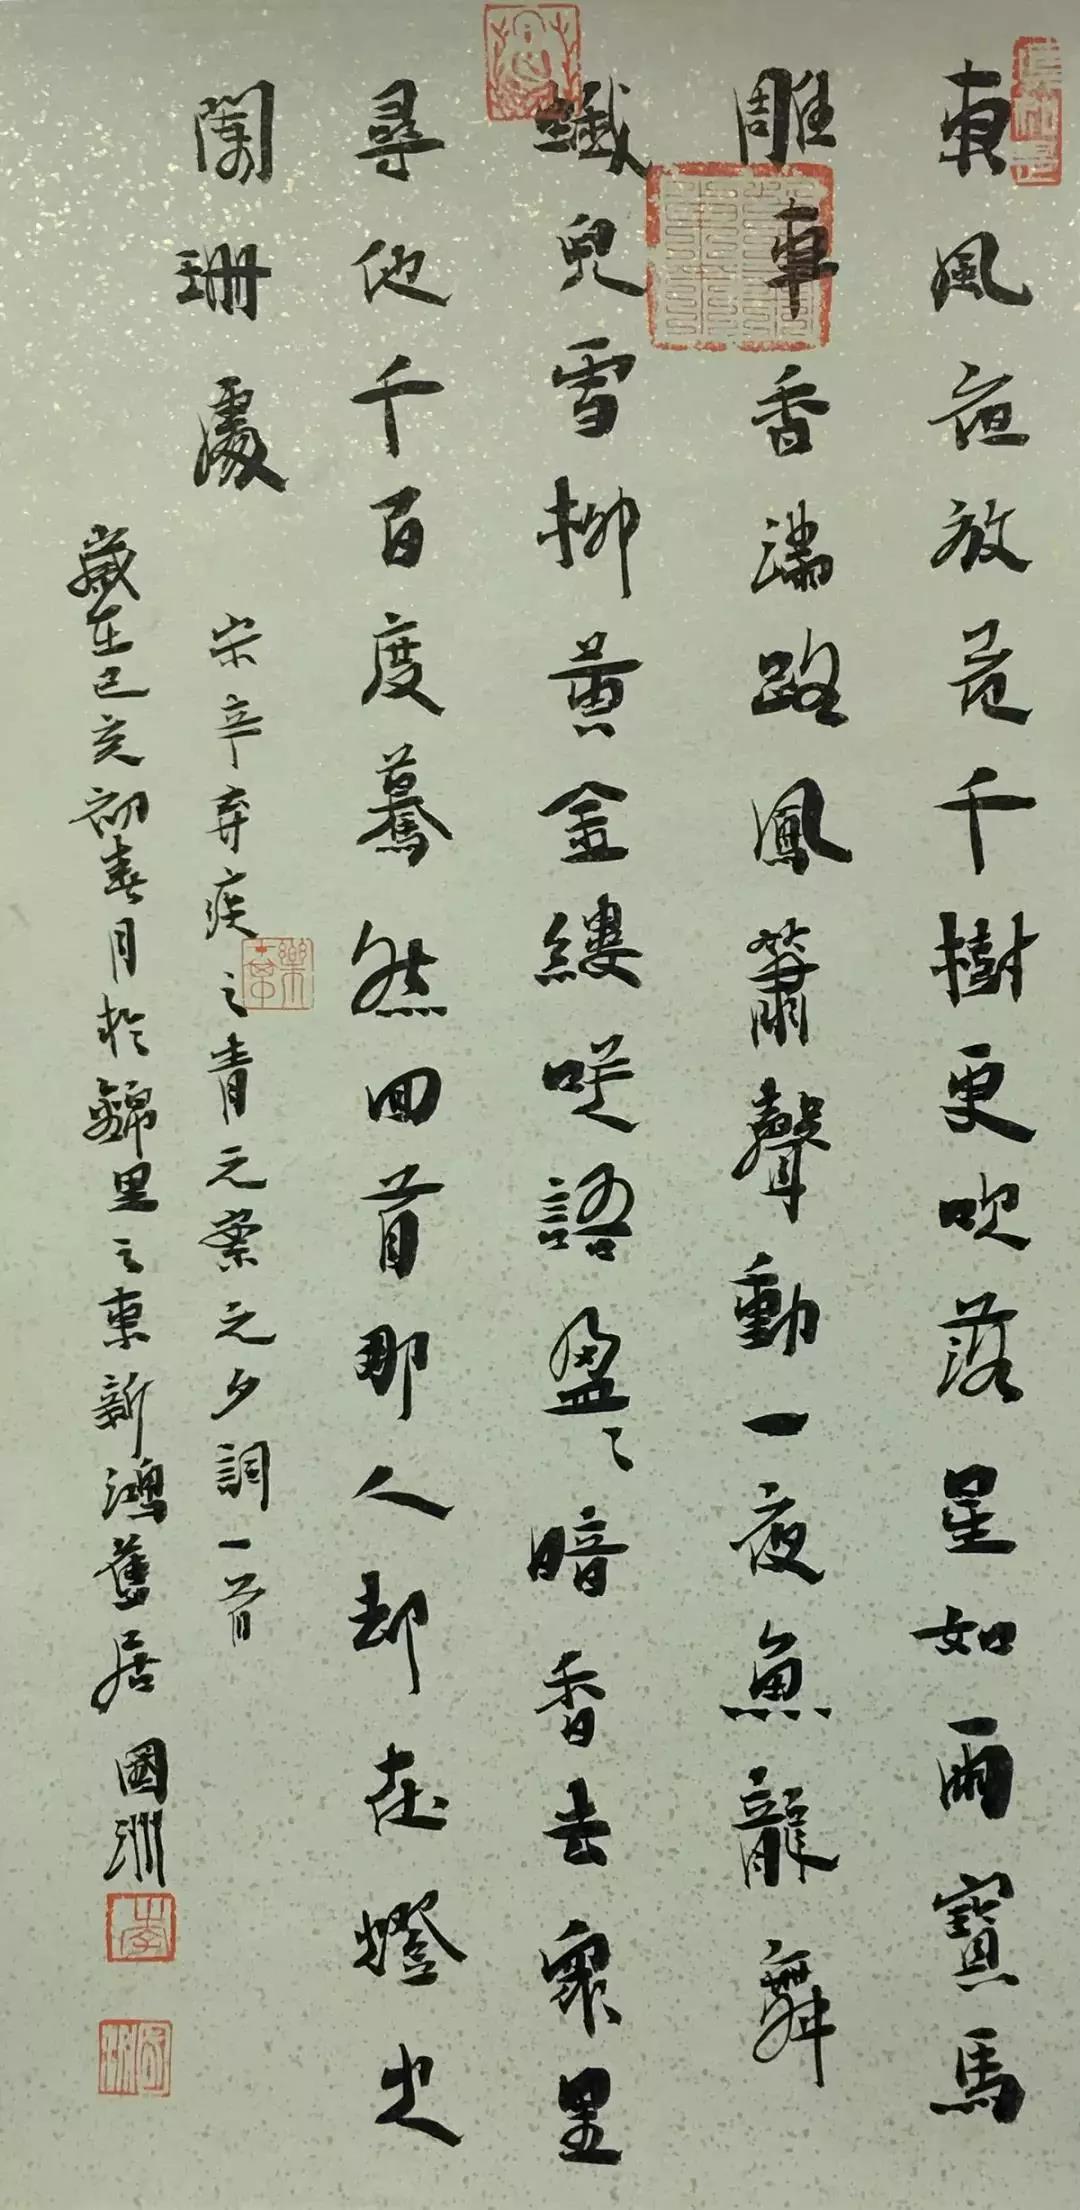 東風夜放花千樹更吹落星如雨寶馬
雕車香滿路鳳簫聲動一夜魚龍舞
蛾兒雪柳黃金縷笑語盈〻暗香去眾里
尋他千百度驀然回首那人却在燈火
闌珊處
宋辛弃疾之青元案元夕詞一首
歲在己亥初春月於錦里之東新鴻舊居國洲